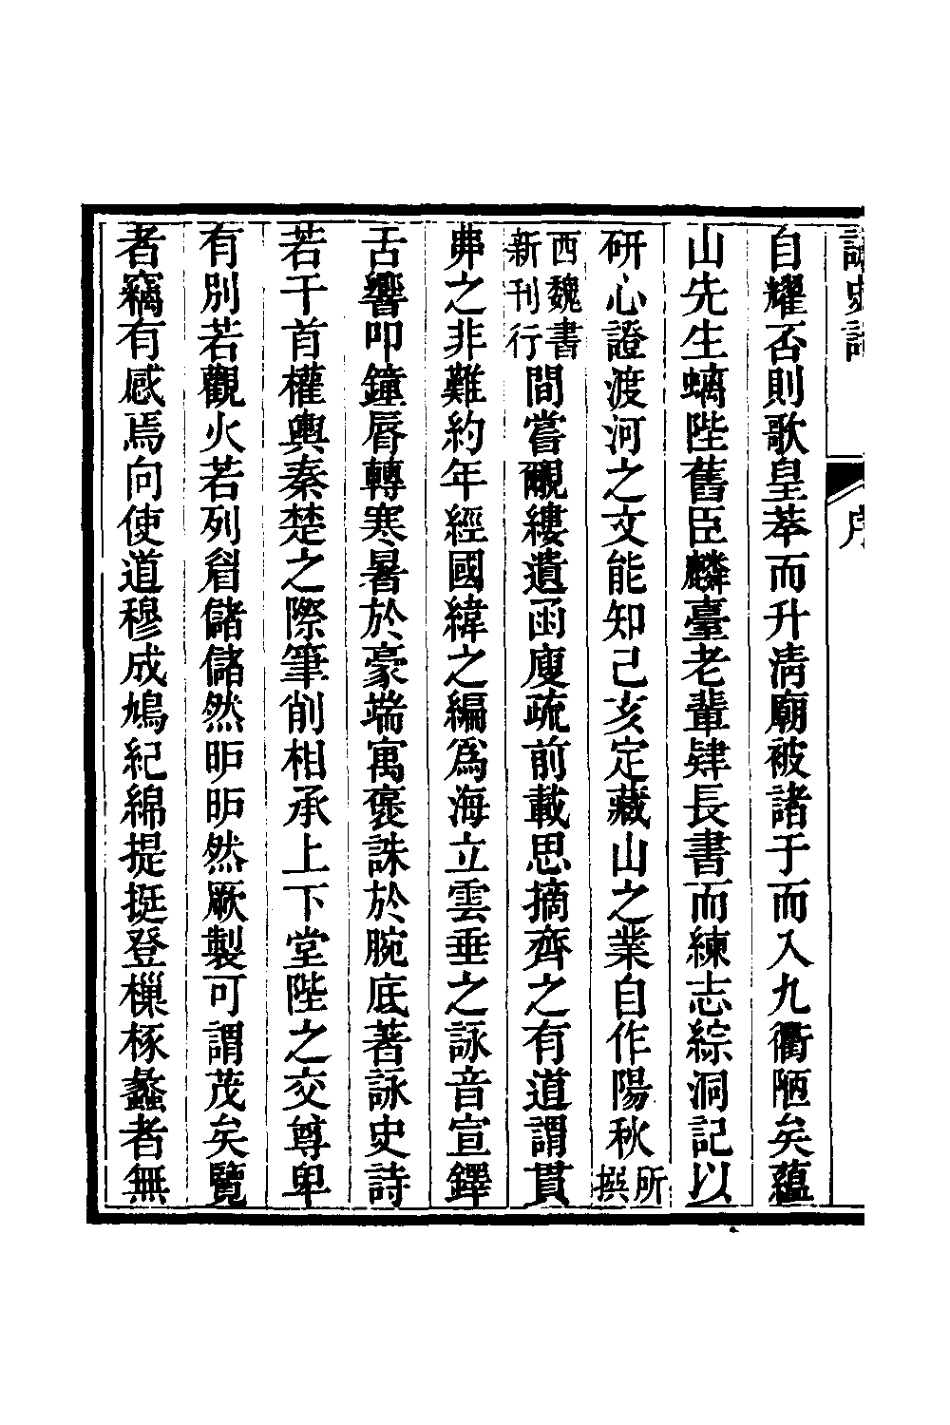 詠史詩
序
自耀否則歌皇荂而升清廟被諸于而入九衢陋矣蘊
山先生螭陛舊臣麟臺老輩肄長書而練志綜洞記以
研心證渡河之文能知己亥定藏山之業自作陽秋所撰
西魏書新刊行間嘗覼縷遺函廋疏前載思摘齊之有道謂貫
弗之非難約年經國緯之編爲海立雲垂之詠音宣鐸
舌響叩鐘脣轉寒暑於豪端寓褒誅於腕底著詠史詩
若干首權輿秦楚之際筆削相承上下堂陛之交尊卑
有別若觀火若列眉儲儲然昈昈然厥製可謂茂矣覽
者竊有感焉向使道穆成鳩紀綿提挺登樔椓蠡者無